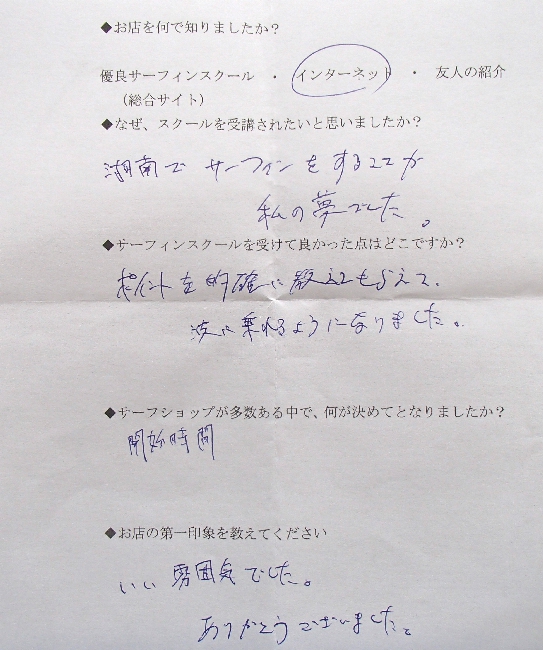 ◆お店を何で知りましたか？
優良サーフィンスクール ・ インターネット ・ 友人の紹介
（総合サイト）
◆なぜ、スクールを受講されたいと思いましたか？
湘南で サーフィンをすることが
私の夢でした。
◆サーフィンスクールを受けて良かった点はどこですか？
ポイントを的確に教えてもらえて、
波に乗れるようになりました。
◆サーフショップが多数ある中で、何が決めてとなりましたか？
開始時間
◆お店の第一印象を教えてください
いい雰囲気でした。
ありがとうございました。